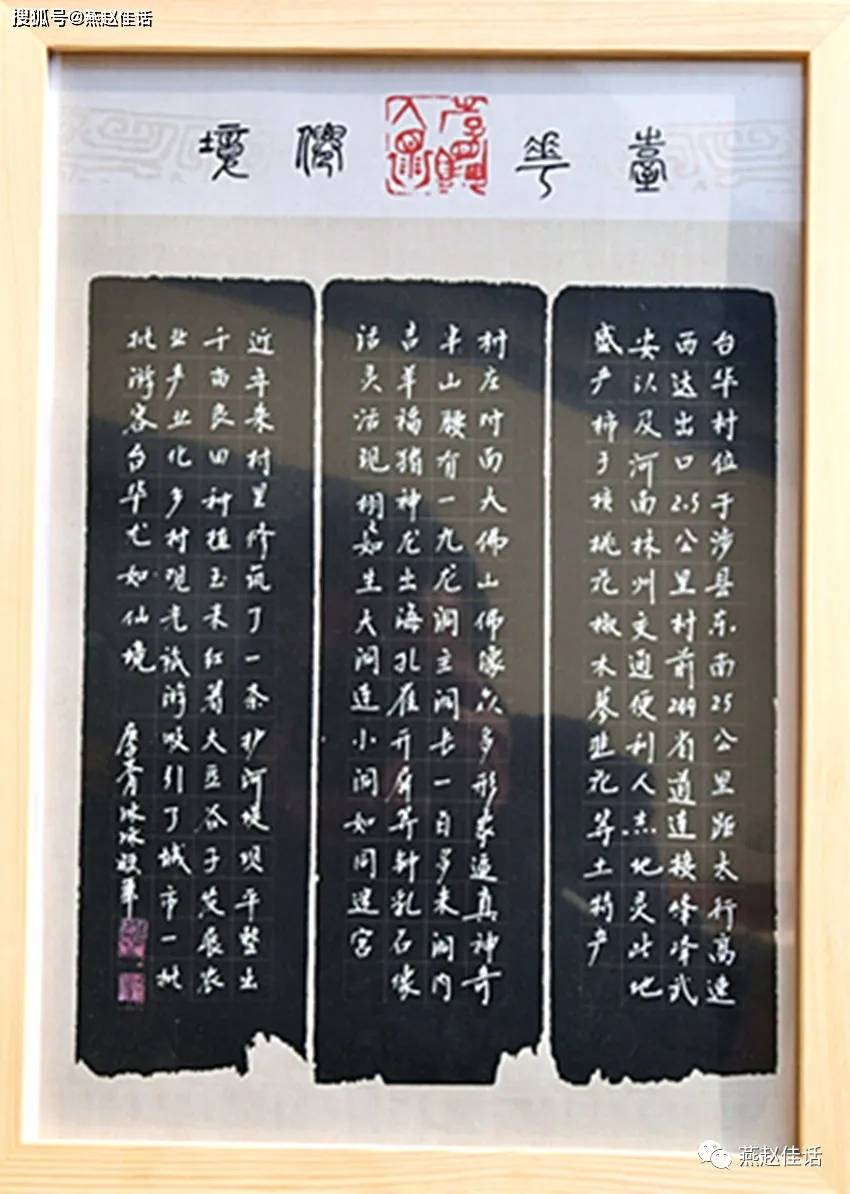 搜狐号@燕赵佳话
臺華僊境
台华村位于涉县东南25公里距太行高速
西达出口2.5公里村前244省道连接峰峰武
安以及河南林州交通便利人杰地灵此地
盛产柿子核桃花椒木等土特产
村庄对面大佛山佛像众多形象逼真神奇
半山腰有一九龙洞主洞长一百多米洞内
吉羊福猪神龙出海孔雀开屏等钟乳石像
活灵活现栩々如生大洞连小洞如同迷宫
近年来村里修筑了一条护河堤坝平整出
千亩良田种植玉米红薯大豆谷子发展农
业产业化乡村观光旅游吸引了城市一批
批游客台华尤如仙境
燕赵佳话